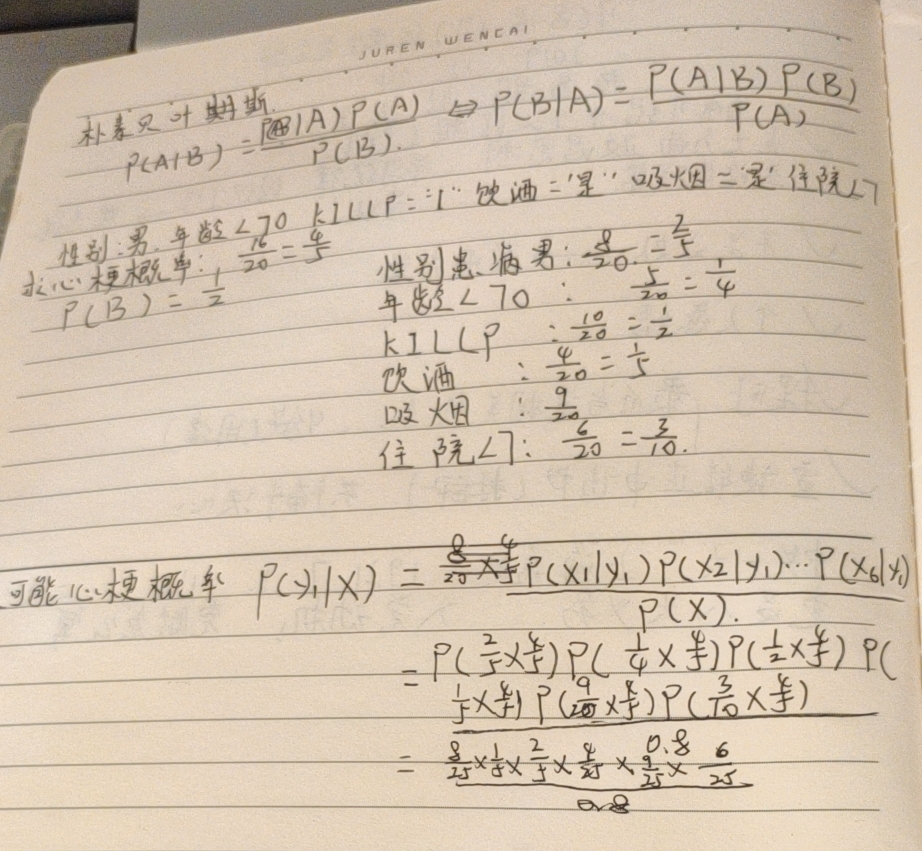 JUREN WENCAI
朴素贝叶斯
P(A|B) = P(B|A) P(A) / P(B). ⇔ P(B|A) = P(A|B) P(B) / P(A)
性别:男. 年龄<70 KILLP="1" 饮酒='是' 吸烟='是' 住院<7
求心梗概率: 16/20 = 4/5
P(B) = 1/2
性别患病男: 8/20 = 2/5
年龄<70 : 5/20 = 1/4
KILLP : 10/20 = 1/2
饮酒 : 4/20 = 1/5
吸烟 : 9/20
住院<7: 6/20 = 3/10.
可能心梗概率 P(y₁|X) = P(X₁|y₁) P(X₂|y₁)... P(X₆|y₁) / P(X).
= P(2/5×4/5) P(1/4×4/5) P(1/2×4/5) P(
1/5×4/5) P(9/20×4/5) P(3/10×4/5)
0.8
= 8/25 × 1/5 × 2/5 × 4/25 × 9/25 × 6/25
0.8